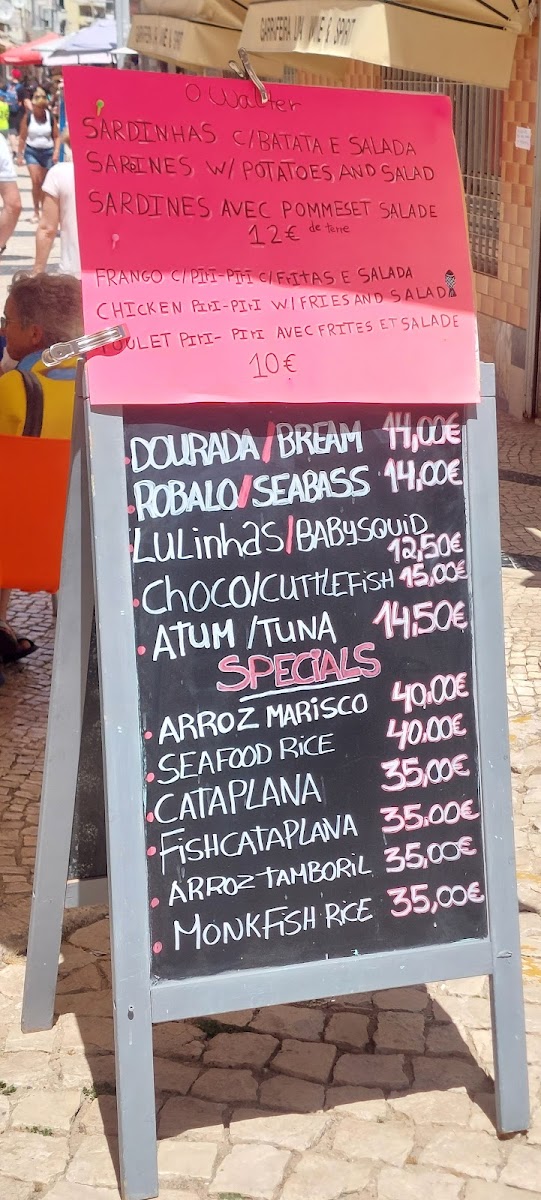 GARRAFEIRA UM WINE & SPIRIT
O Walter
SARDINHAS C/BATATA E SALADA
SARDINES W/ POTATOES AND SALAD
SARDINES AVEC POMMES ET SALADE
de terre
12€
FRANGO C/PIRI-PIRI C/FRITAS E SALADA
CHICKEN PIRI-PIRI W/FRIES AND SALAD
POULET PIRI-PIRI AVEC FRITES ET SALADE
10€
DOURADA/BREAM 14,00€
ROBALO/SEABASS 14,00€
LULinhaS/BABYSQUID 12,50€
CHOCO/CUTTLEFISH 15,00€
ATUM/TUNA 14,50€
SPECIALS
ARROZ MARISCO 40,00€
SEAFOOD RICE 40,00€
CATAPLANA 35,00€
FISHCATAPLANA 35,00€
ARROZ TAMBORIL 35,00€
MONKFISH RICE 35,00€